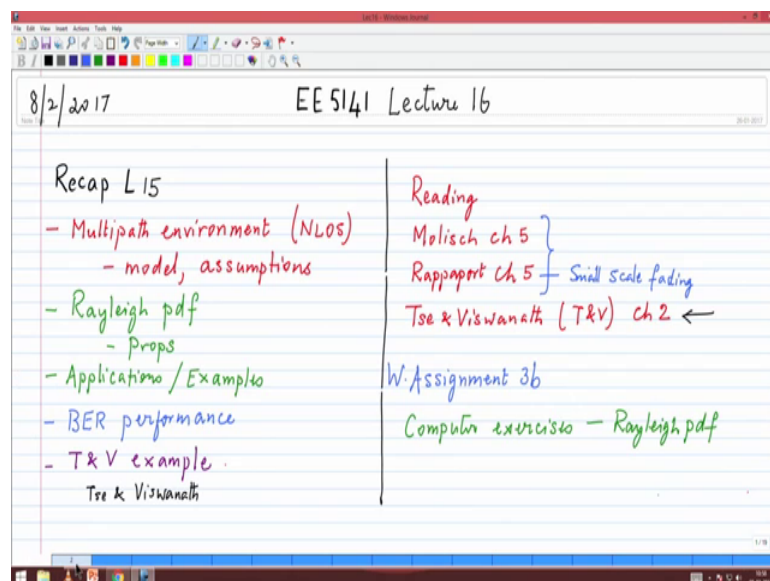 Lec16 - Windows Journal
File Edit View Insert Actions Tools Help
Page Width
B I
8/2/2017
EE 5141 Lecture 16
Recap L 15
- Multipath environment (NLOS)
- model, assumptions
- Rayleigh pdf
- Props
- Applications / Examples
- BER performance
- T & V example
Tse & Viswanath
Reading
Molisch ch 5
Rappaport ch 5 - Small scale fading
Tse & Viswanath (T&V) ch 2 ←
W. Assignment 3b
Computer exercises - Rayleigh pdf